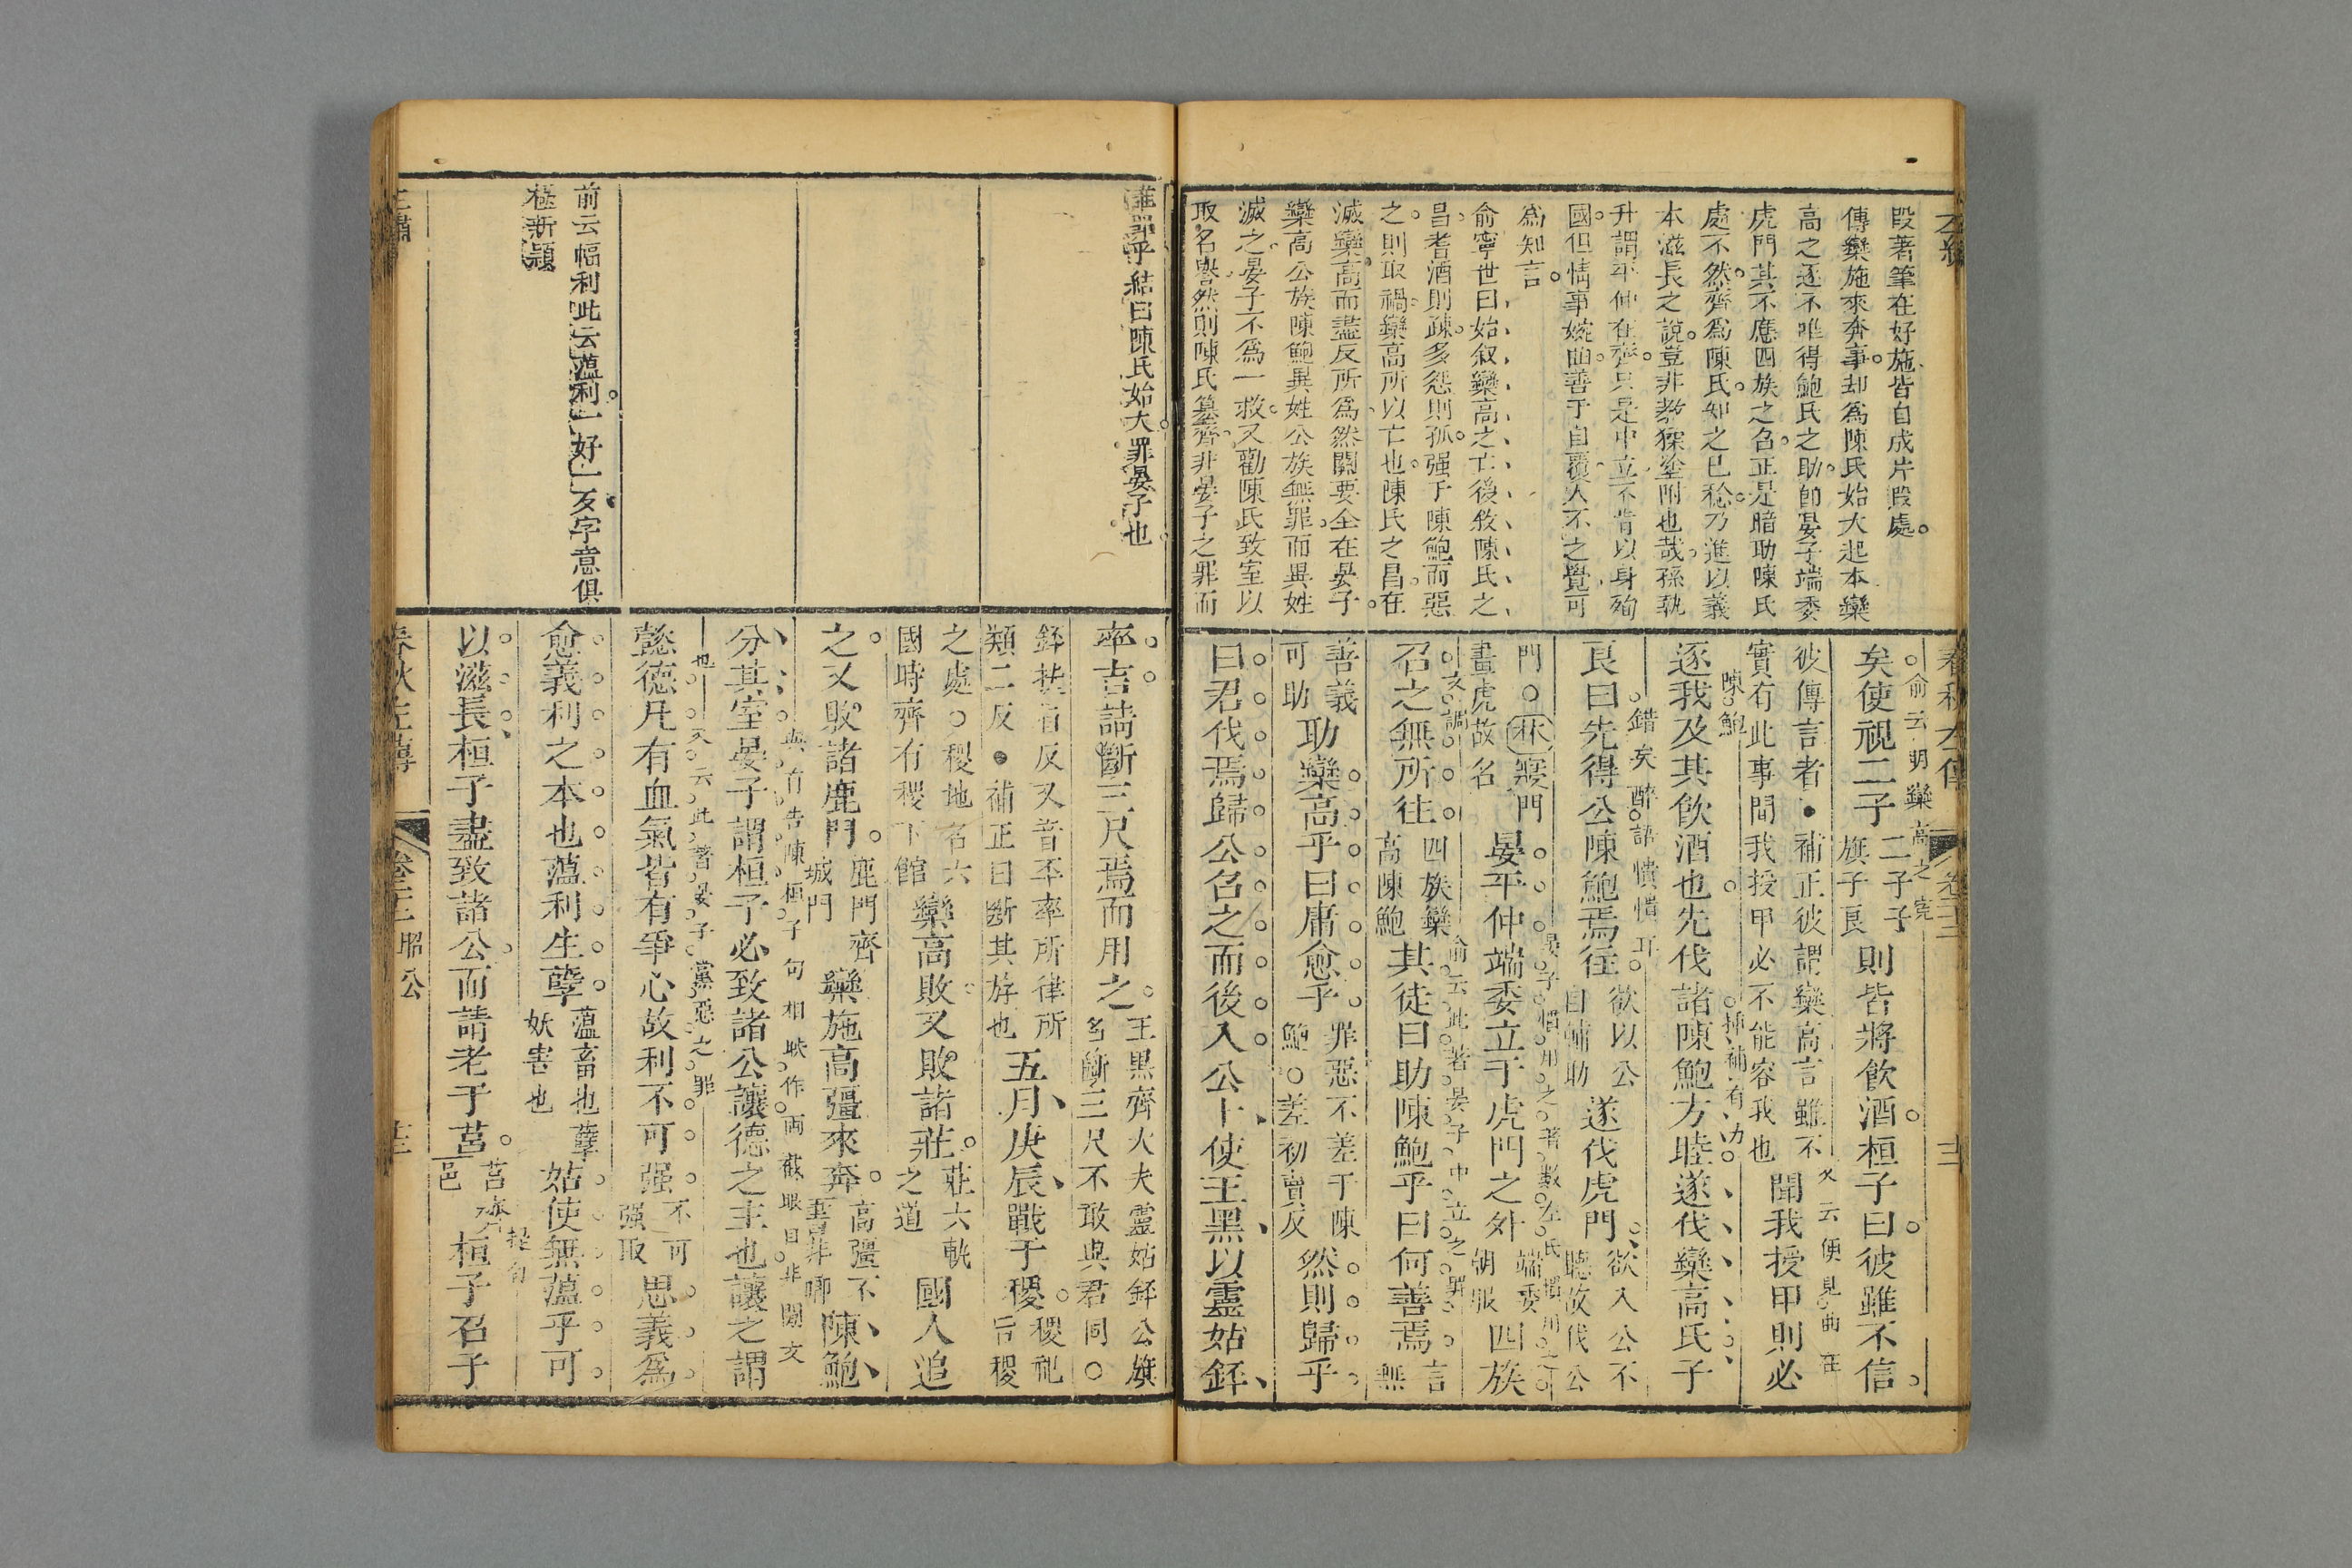 左繡
段著筆在好施皆自成片段處
傳欒施來奔事却為陳氏始大起本欒
高之逐不唯得鮑氏之助卽晏子端委
虎門其不應四族之召正是暗助陳氏
處不然齊為陳氏知之已稔乃進以義
本滋長之說豈非教猱塗附也哉孫執
升謂平仲在齊只是中立不肯以身殉
國但情事婉曲善于自覆人不之覺可
為知言
俞寧世曰始叙欒高之亡後敘陳氏之
昌耆酒則疎多怨則孤强于陳鮑而惡
之則取禍欒高所以亡也陳氏之昌在
滅欒高而盡反所為然關要全在晏子
欒高公族陳鮑異姓公族無罪而異姓
滅之晏子不為一救又勸陳氏致室以
取名譽然則陳氏篡齊非晏子之罪而
春秋左傳
俞云明欒高之寃
矣使視二子二子子旗子良則皆將飲酒桓子曰彼雖不信
又云便見曲在陳鮑
彼傳言者補正彼謂欒高言雖不實有此事間我授甲必不能容我也聞我授甲則必
逐我及其飲酒也先伐諸陳鮑方睦遂伐欒高氏子
挿補有力
錯矣醉語憒憒耳
良曰先得公陳鮑焉往欲以公自輔助遂伐虎門欲入公不聽故伐公
門○林寢門畫虎故名晏平仲端委立于虎門之外端委朝服四族
俞云此著晏子中立之罪
召之無所往四族欒高陳鮑其徒曰助陳鮑乎曰何善焉言無
善義可助助欒高乎曰庸愈乎罪惡不差于陳鮑○差初賣反然則歸乎
曰君伐焉歸公召之而後入公卜使王黑以靈姑銔
誰罪乎結曰陳氏始大罪晏子也
前云幅利此云蘊利一好一歹字意俱
極新穎
率吉請斷三尺焉而用之王黑齊大夫靈姑銔公旗名斷三尺不敢與君同○
銔扶眉反又音丕率所律所類二反補正曰斷其斿也五月庚辰戰于稷稷祀后稷
之處○稷地名六國時齊有稷下館欒高敗又敗諸莊莊六軌之道國人追
之又敗諸鹿門鹿門齊城門欒施高彊來奔高彊不書非卿陳鮑
與首告陳桓子句相映作兩截眼目非閒文
分其室晏子謂桓子必致諸公讓德之主也讓之謂
又云此著晏子黨惡之罪也
懿德凡有血氣皆有爭心故利不可强不可强取思義為
愈義利之本也蘊利生孽蘊畜也孽妖害也姑使無蘊乎可
以滋長桓子盡致諸公而請老于莒莒齊邑桓子召子
春秋左傳 昭公